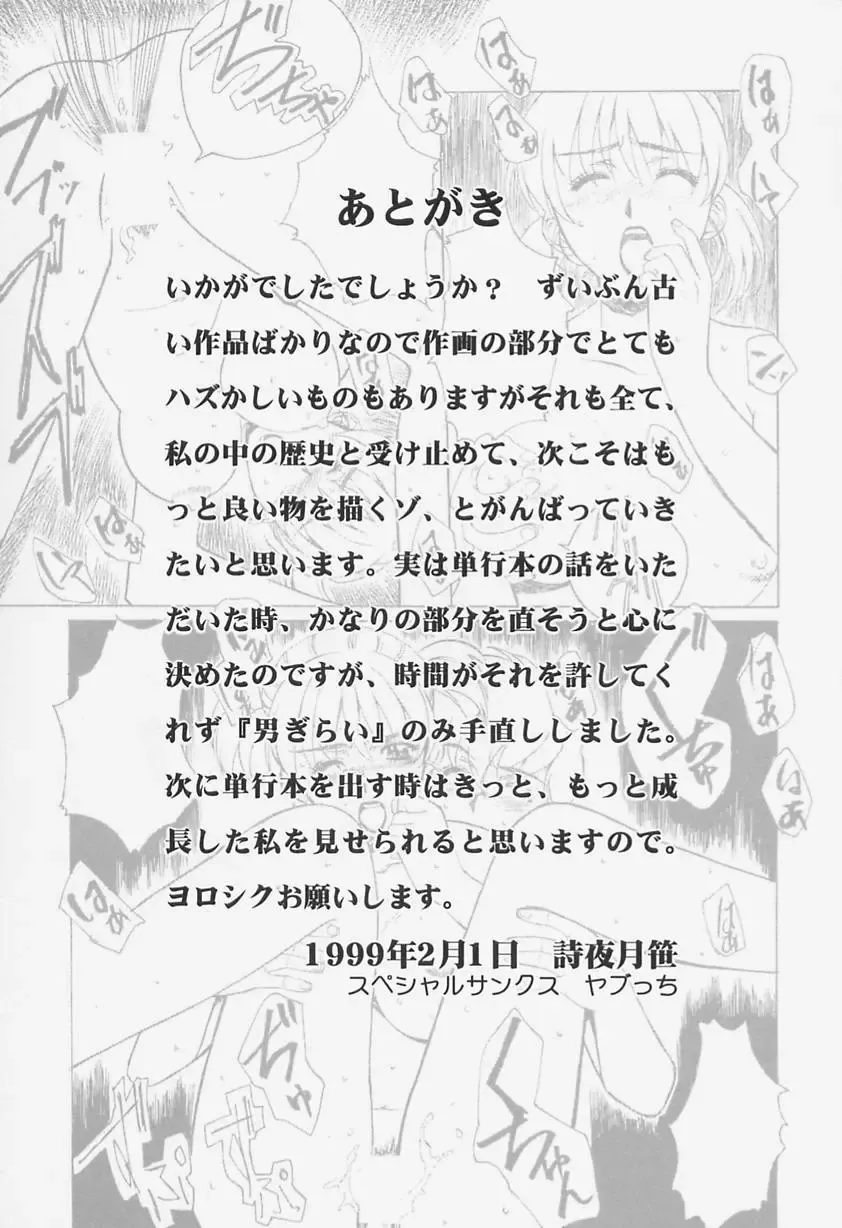 あとがき
いかがでしたでしょうか？　ずいぶん古
い作品ばかりなので作画の部分でとても
ハズかしいものもありますがそれも全て、
私の中の歴史と受け止めて、次こそはも
っと良い物を描くゾ、とがんばっていき
たいと思います。実は単行本の話をいた
だいた時、かなりの部分を直そうと心に
決めたのですが、時間がそれを許してく
れず『男ぎらい』のみ手直ししました。
次に単行本を出す時はきっと、もっと成
長した私を見せられると思いますので。
ヨロシクお願いします。
1999年2月1日　詩夜月笹
スペシャルサンクス　ヤブっち
はぁ
はぁ
はぁ
はぁ
はぁ
はぁ
はぁ
はぁ